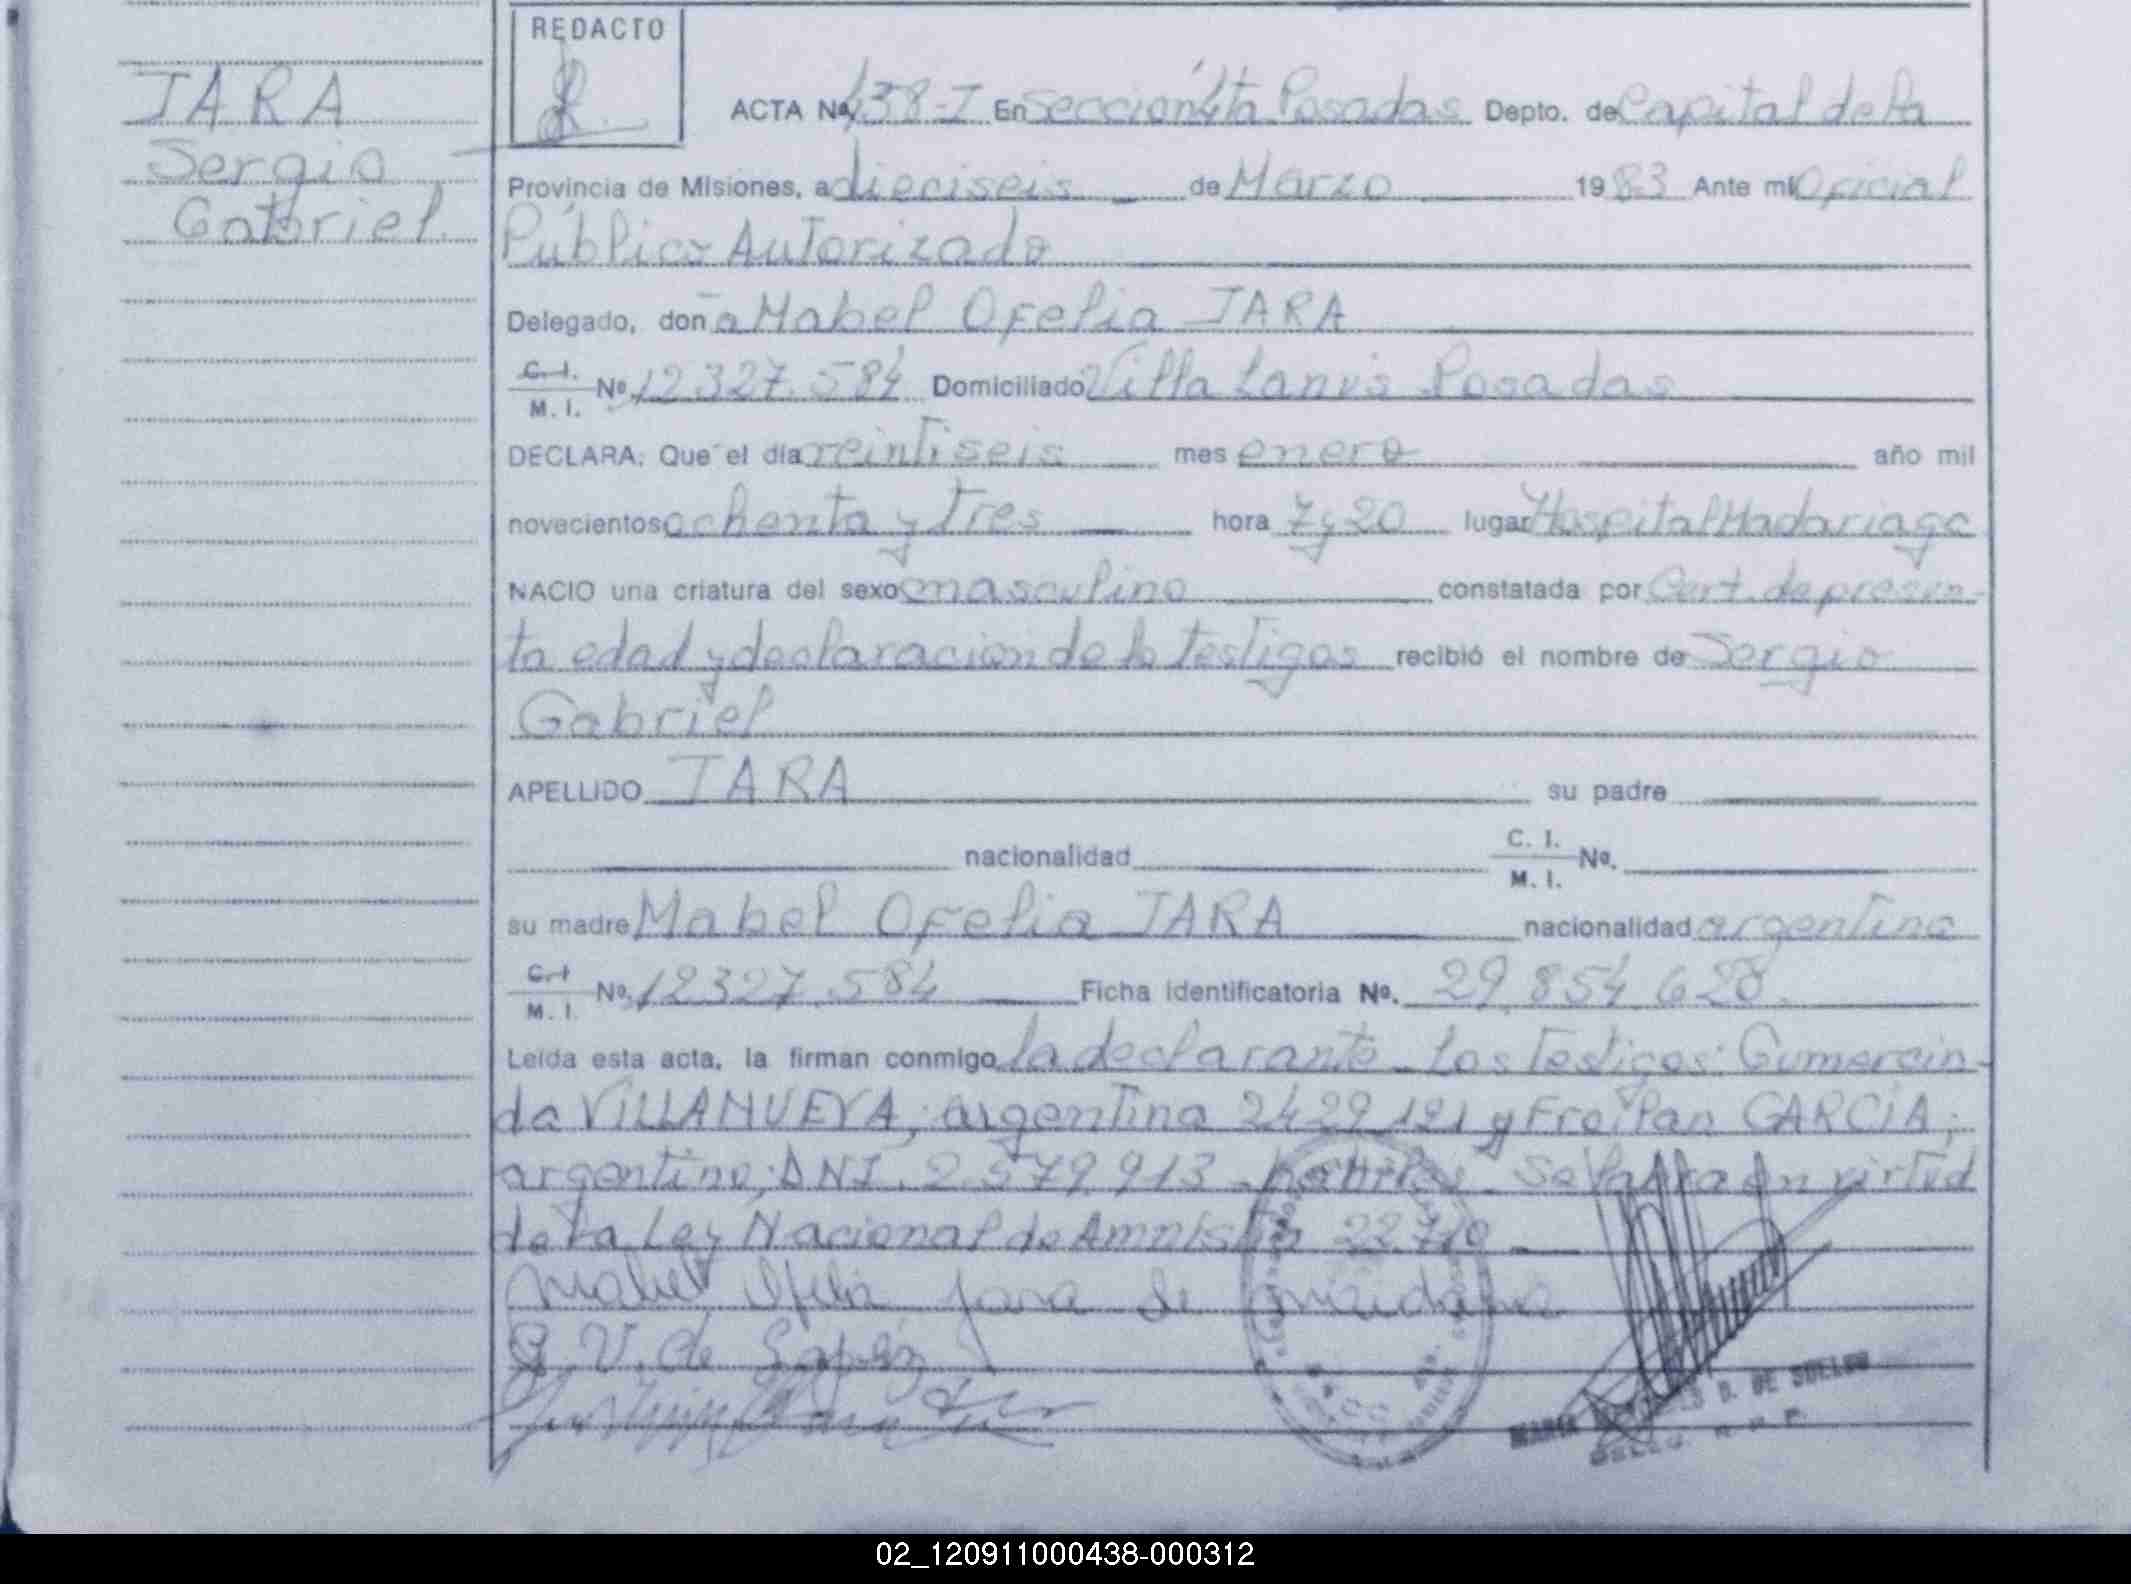 JARA
Sergio
Gabriel
REDACTO
ACTA Nº 438-I En Sección 4ta Posadas Depto. de Capital de la
Provincia de Misiones, a dieciseis de Marzo 1983 Ante mi Oficial
Público Autorizado
Delegado, doña Mabel Ofelia JARA
C. I. M. I. Nº 12327.584 Domiciliado Villa Lanus Posadas
DECLARA: Que el día veintiseis mes enero año mil
novecientos ochenta y tres hora 7 y 20 lugar Hospital Madariaga
NACIO una criatura del sexo masculino constatada por Cert. de presun-
ta edad y declaracion de lo testigos recibió el nombre de Sergio
Gabriel
APELLIDO JARA su padre
nacionalidad C. I. M. I. Nº.
su madre Mabel Ofelia JARA nacionalidad argentina
C. I M. I. Nº. 12327.584 Ficha identificatoria Nº. 29.854.628.
Leída esta acta, la firman conmigo la declarante. Los Testigos: Gumercin-
da VILLANUEVA; argentina 2429.121 y Froilan GARCIA;
argentino; DNI. 2.579.913 - habiles. Se labra en virtud
de la Ley Nacional de Amnistia 22.710
Mabel Ofelia Jara de
G. V. de
MARIA D. DE
02_120911000438-000312